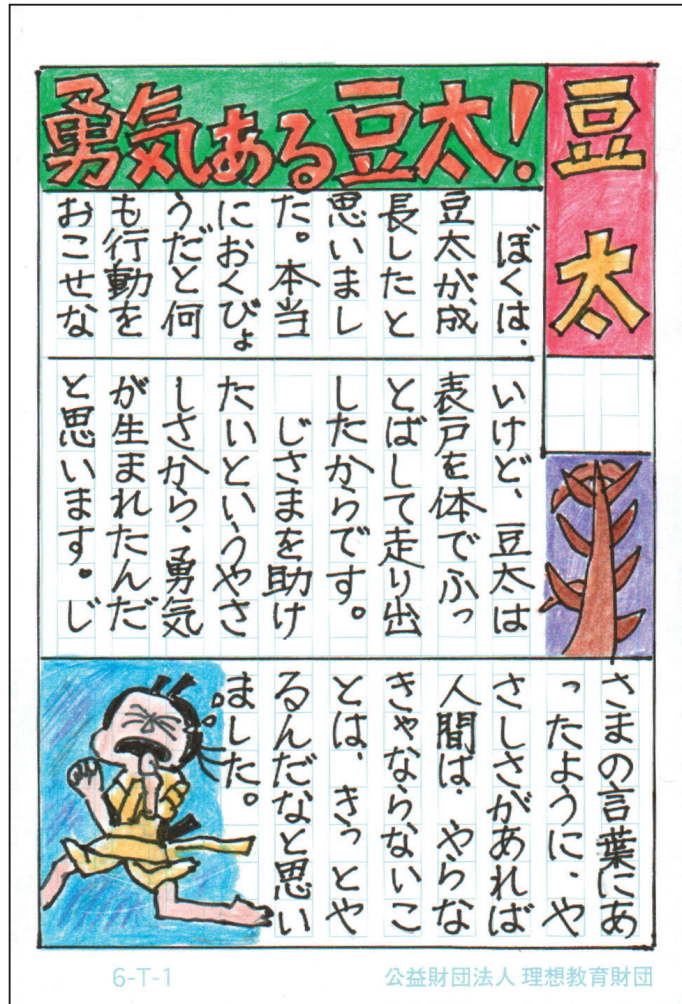 豆太
勇気ある豆太！
ぼくは、
豆太が、成
長したと
思いまし
た。本当
におくびょ
うだと何
も行動を
おこせな
いけど、豆太は
表戸を体でふっ
とばして走り出
したからです。
じさまを助け
たいというやさ
しさから、勇気
が生まれたんだ
と思います。じ
さまの言葉にあ
ったように、や
さしさがあれば
人間は、やらな
きゃならないこ
とは、きっとや
るんだなと思い
ました。
6-T-1
公益財団法人 理想教育財団